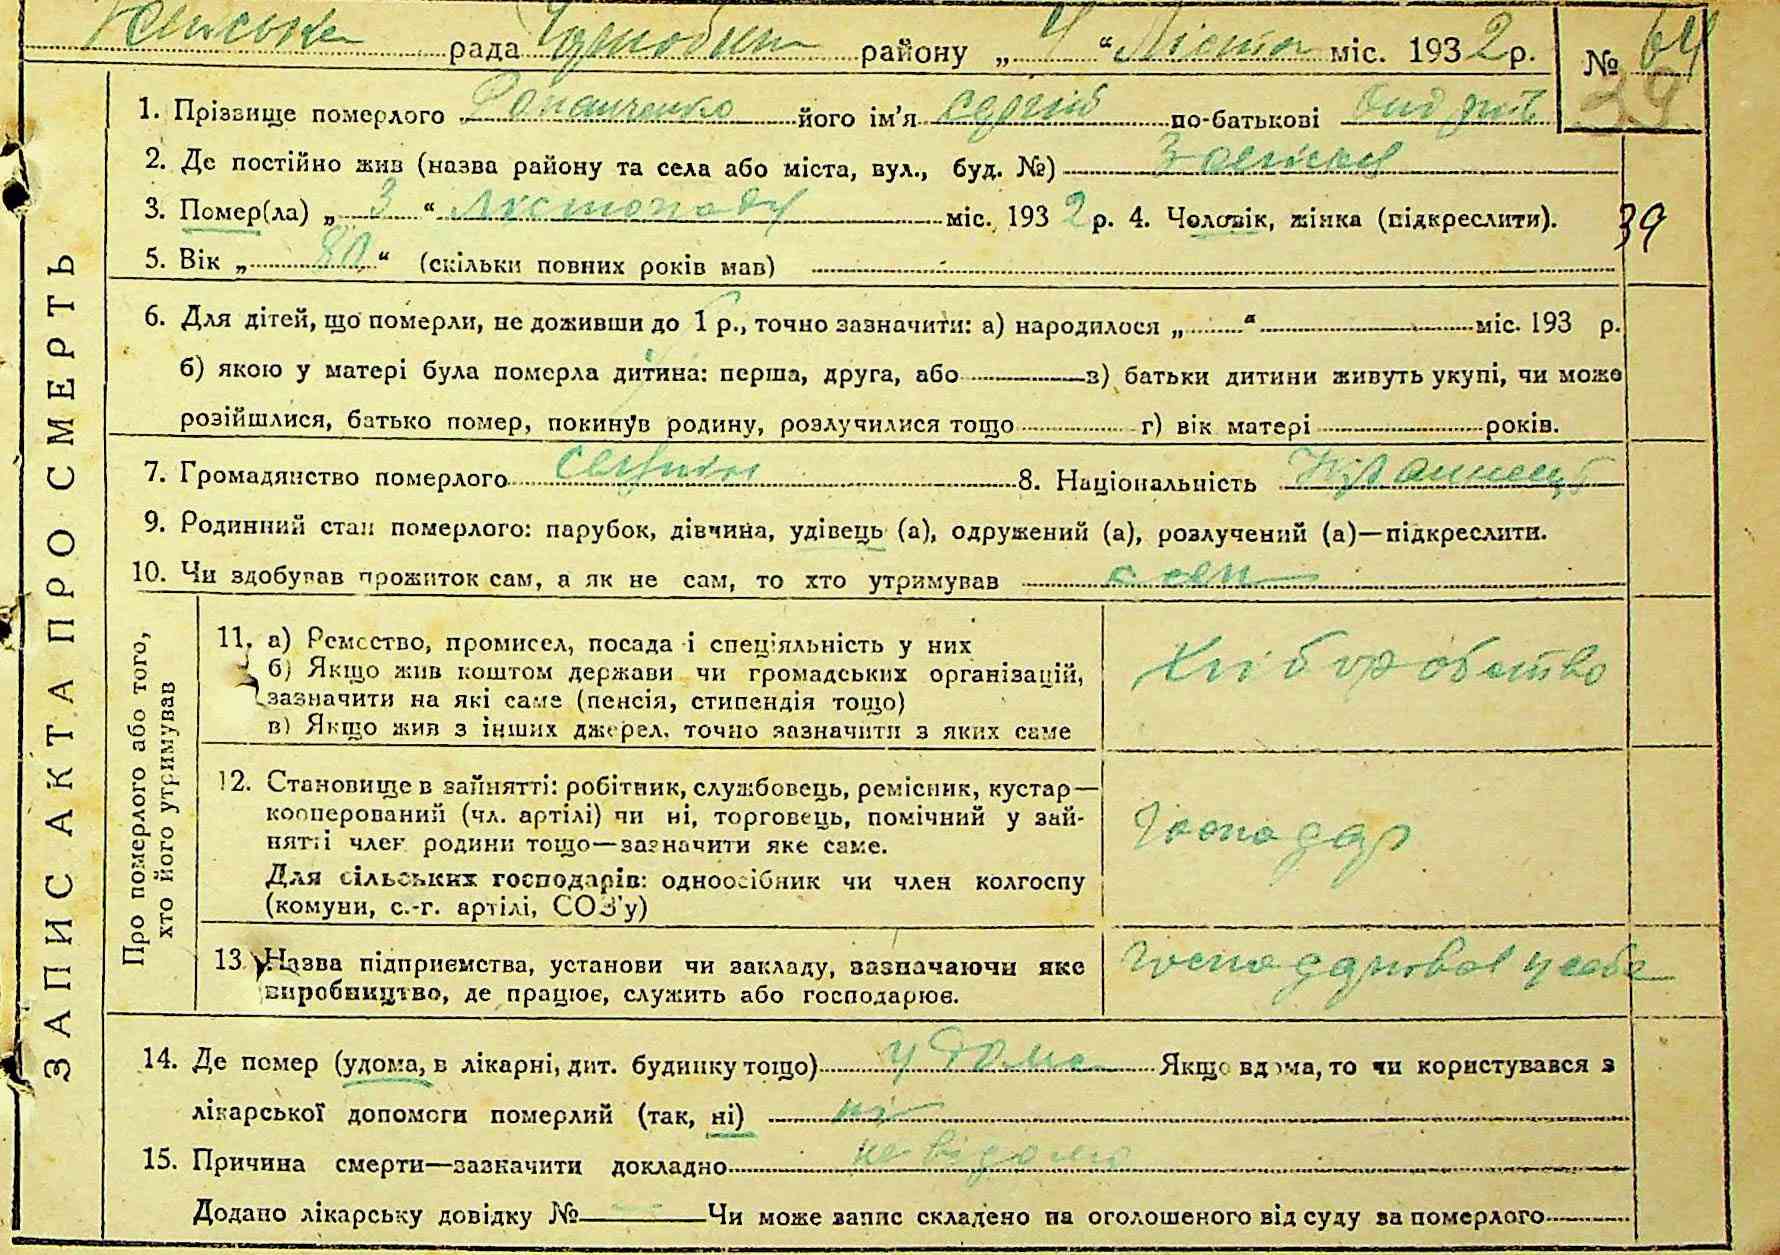 рада района „ 4 “ міс. 1932 р. № 64
39
1. Прізвище померлого його ім'я Сергій по-батькові
2. Де постійно жив (назва району та села або міста, вул., буд. №)
3. Помер(ла) „ 3 “ Листопаду міс. 1932 р. 4. Чоловік, жінка (підкреслити).
39
5. Вік „ 80 “ (скільки повних років мав)
6. Для дітей, що померли, не доживши до 1 р., точно зазначити: а) народилося „ “ міс. 193 р.
б) якою у матері була померла дитина: перша, друга, або в) батьки дитини живуть укупі, чи може
розійшлися, батько помер, покинув родину, розлучилися тощо г) вік матері років.
7. Громадянство померлого 8. Національність Украинець
9. Родинний стан померлого: парубок, дівчина, удівець (а), одружений (а), розлучений (а)—підкреслити.
10. Чи здобував прожиток сам, а як не сам, то хто утримував
ЗАПИС АКТА ПРО СМЕРТЬ
Про померлого або того,
хто його утримував
11. а) Ремество, промисел, посада і спеціяльність у них
б) Якщо жив коштом держави чи громадських організацій,
зазначити на які саме (пенсія, стипендія тощо)
в) Якщо жив з інших джерел, точно зазначити з яких саме
Хліборобство
12. Становище в зайнятті: робітник, службовець, ремісник, кустар—
кооперований (чл. артілі) чи ні, торговець, помічний у зай-
нятті член родини тощо—зазначити яке саме.
Для сільських господарів: одноосібник чи член колгоспу
(комуни, с.-г. артілі, СОЗ'у)
Господар
13. Назва підприємства, установи чи закладу, зазначаючи яке
виробництво, де працює, служить або господарює.
Господарював у себе
14. Де помер (удома, в лікарні, дит. будинку тощо) у дома Якщо вдома, то чи користувався з
лікарської допомоги померлий (так, ні) ні
15. Причина смерти—зазначити докладно не відомо
Додано лікарську довідку № — Чи може запис складено на оголошеного від суду за померлого